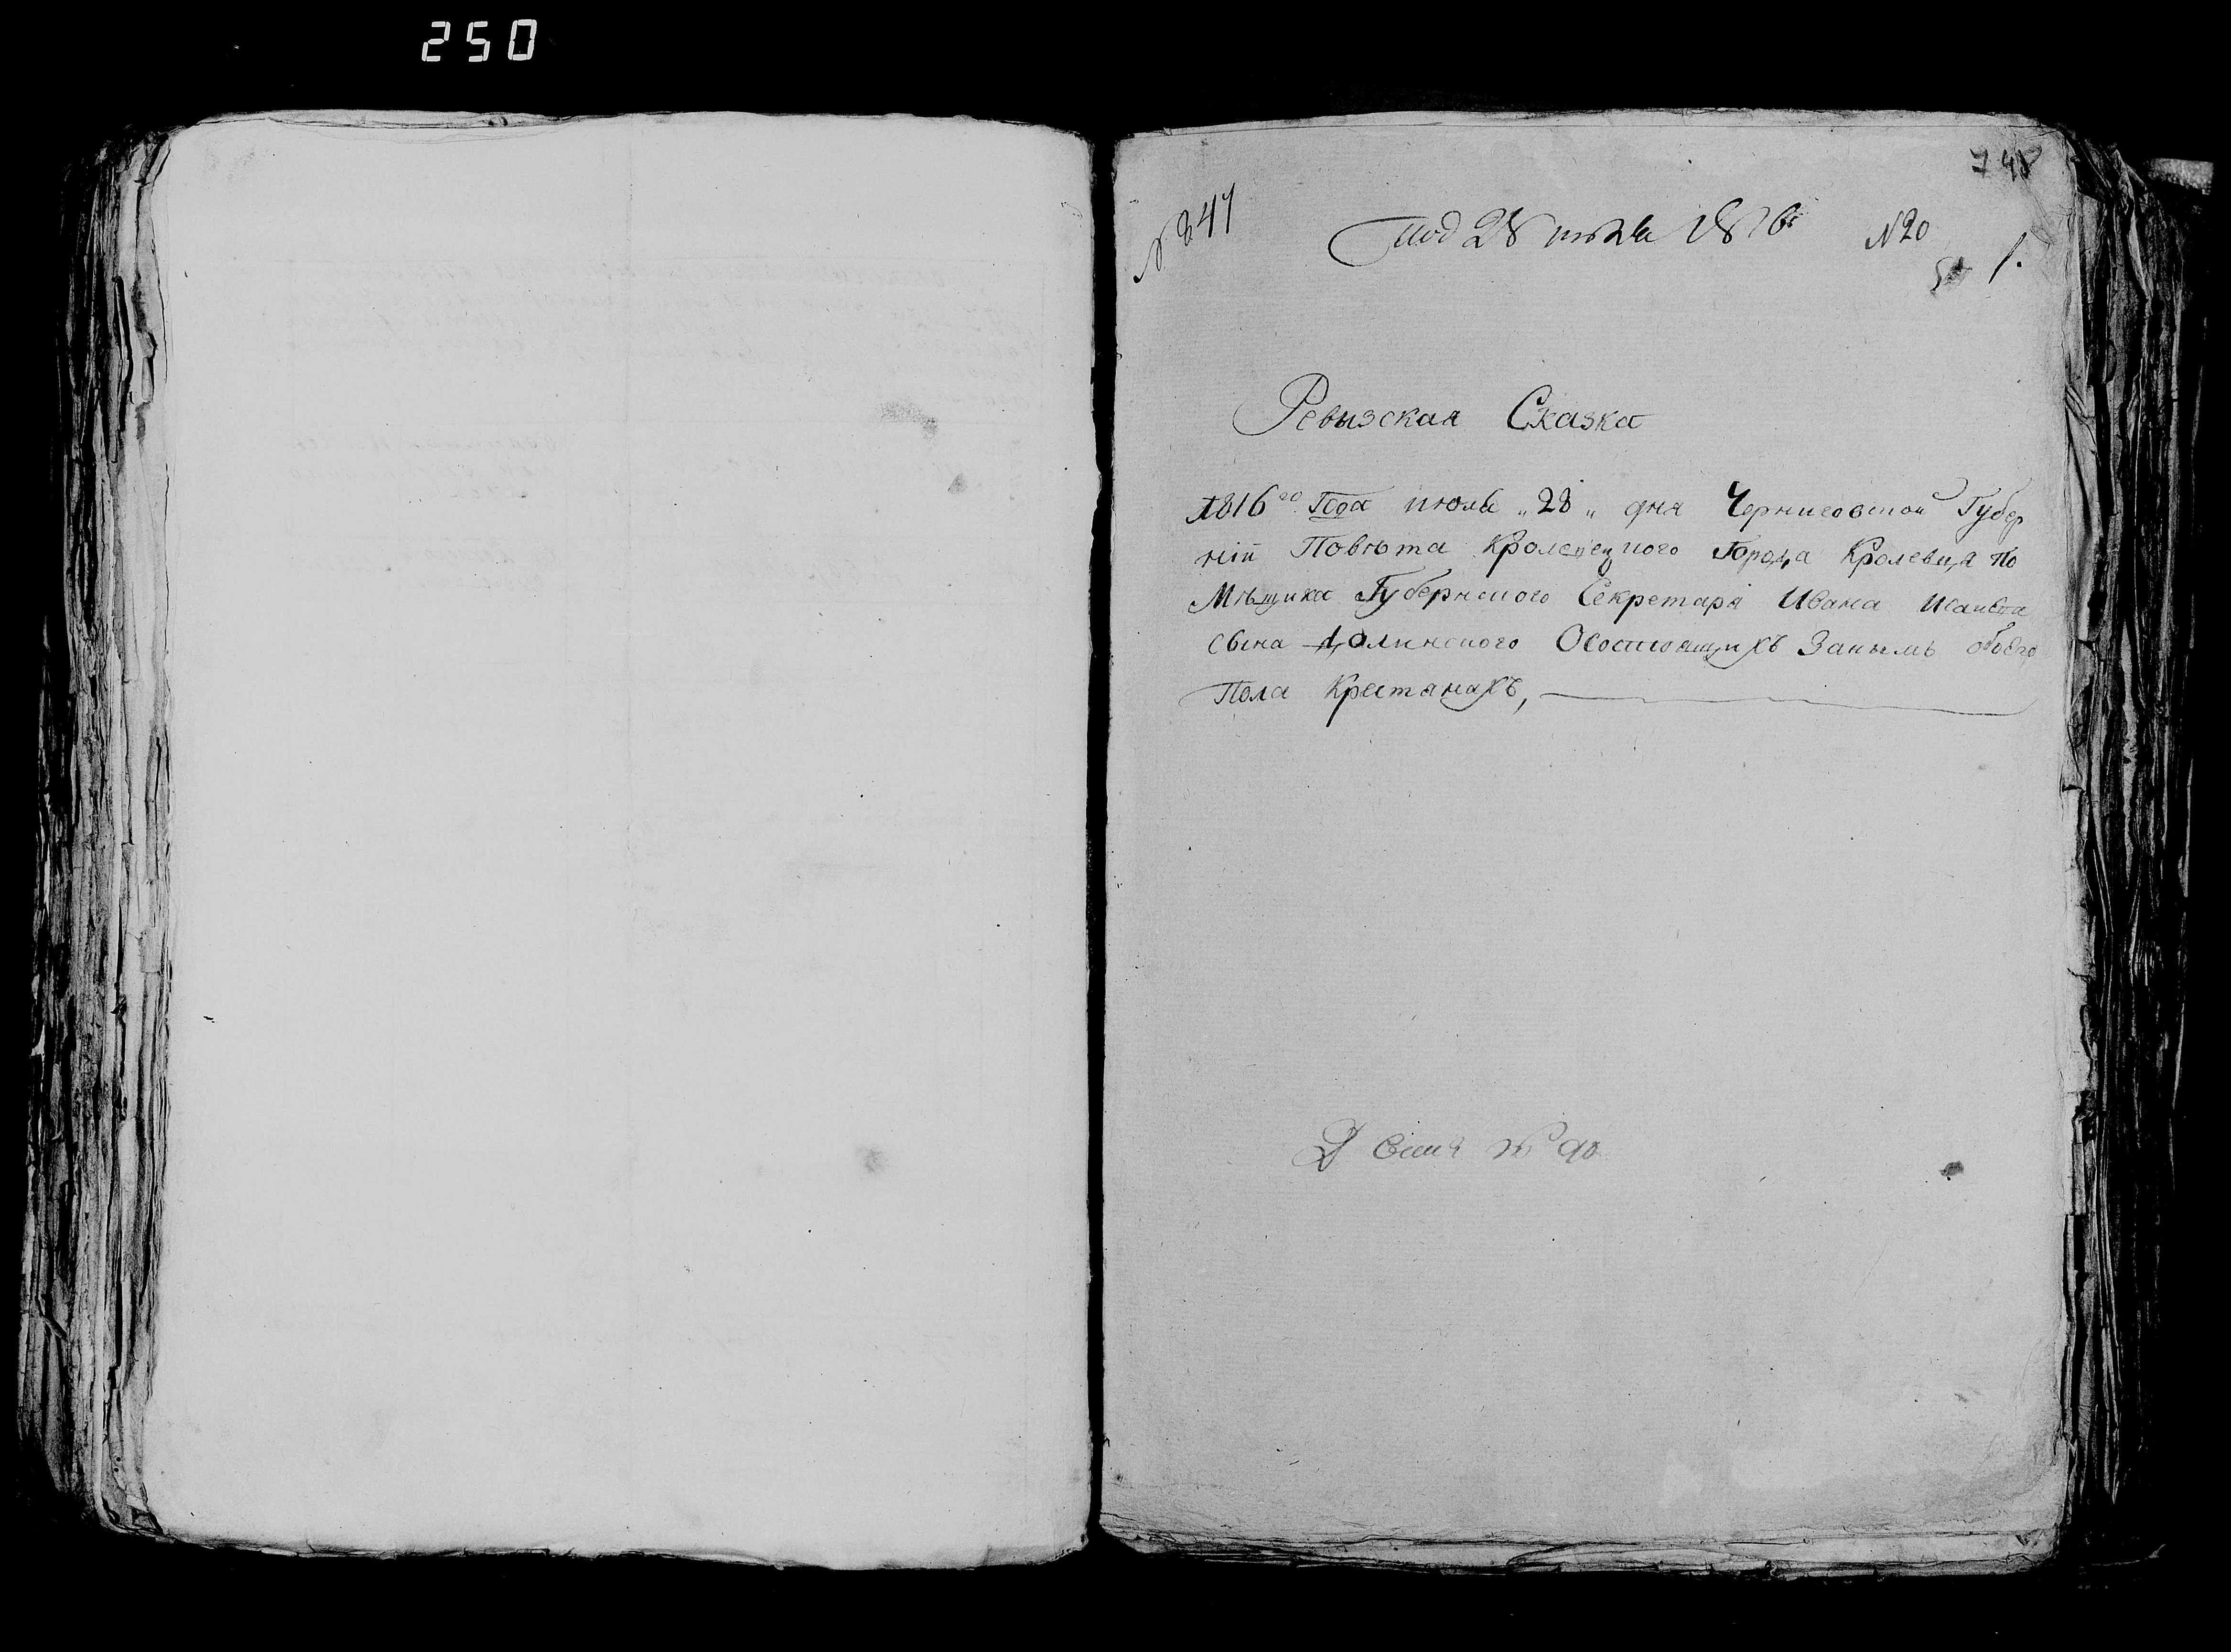 250
748
№ 20
1.
Ревызская Сказка
1816го Года июля „28„ дня Черниговской Губер
ніи Повѣта Кролевецкого Города Кролевця По
Мѣщика Губернского Секретаря Ивана
сына Долинского Осостоящихъ Занымъ обоего
Пола Крестянахъ,
№ 90